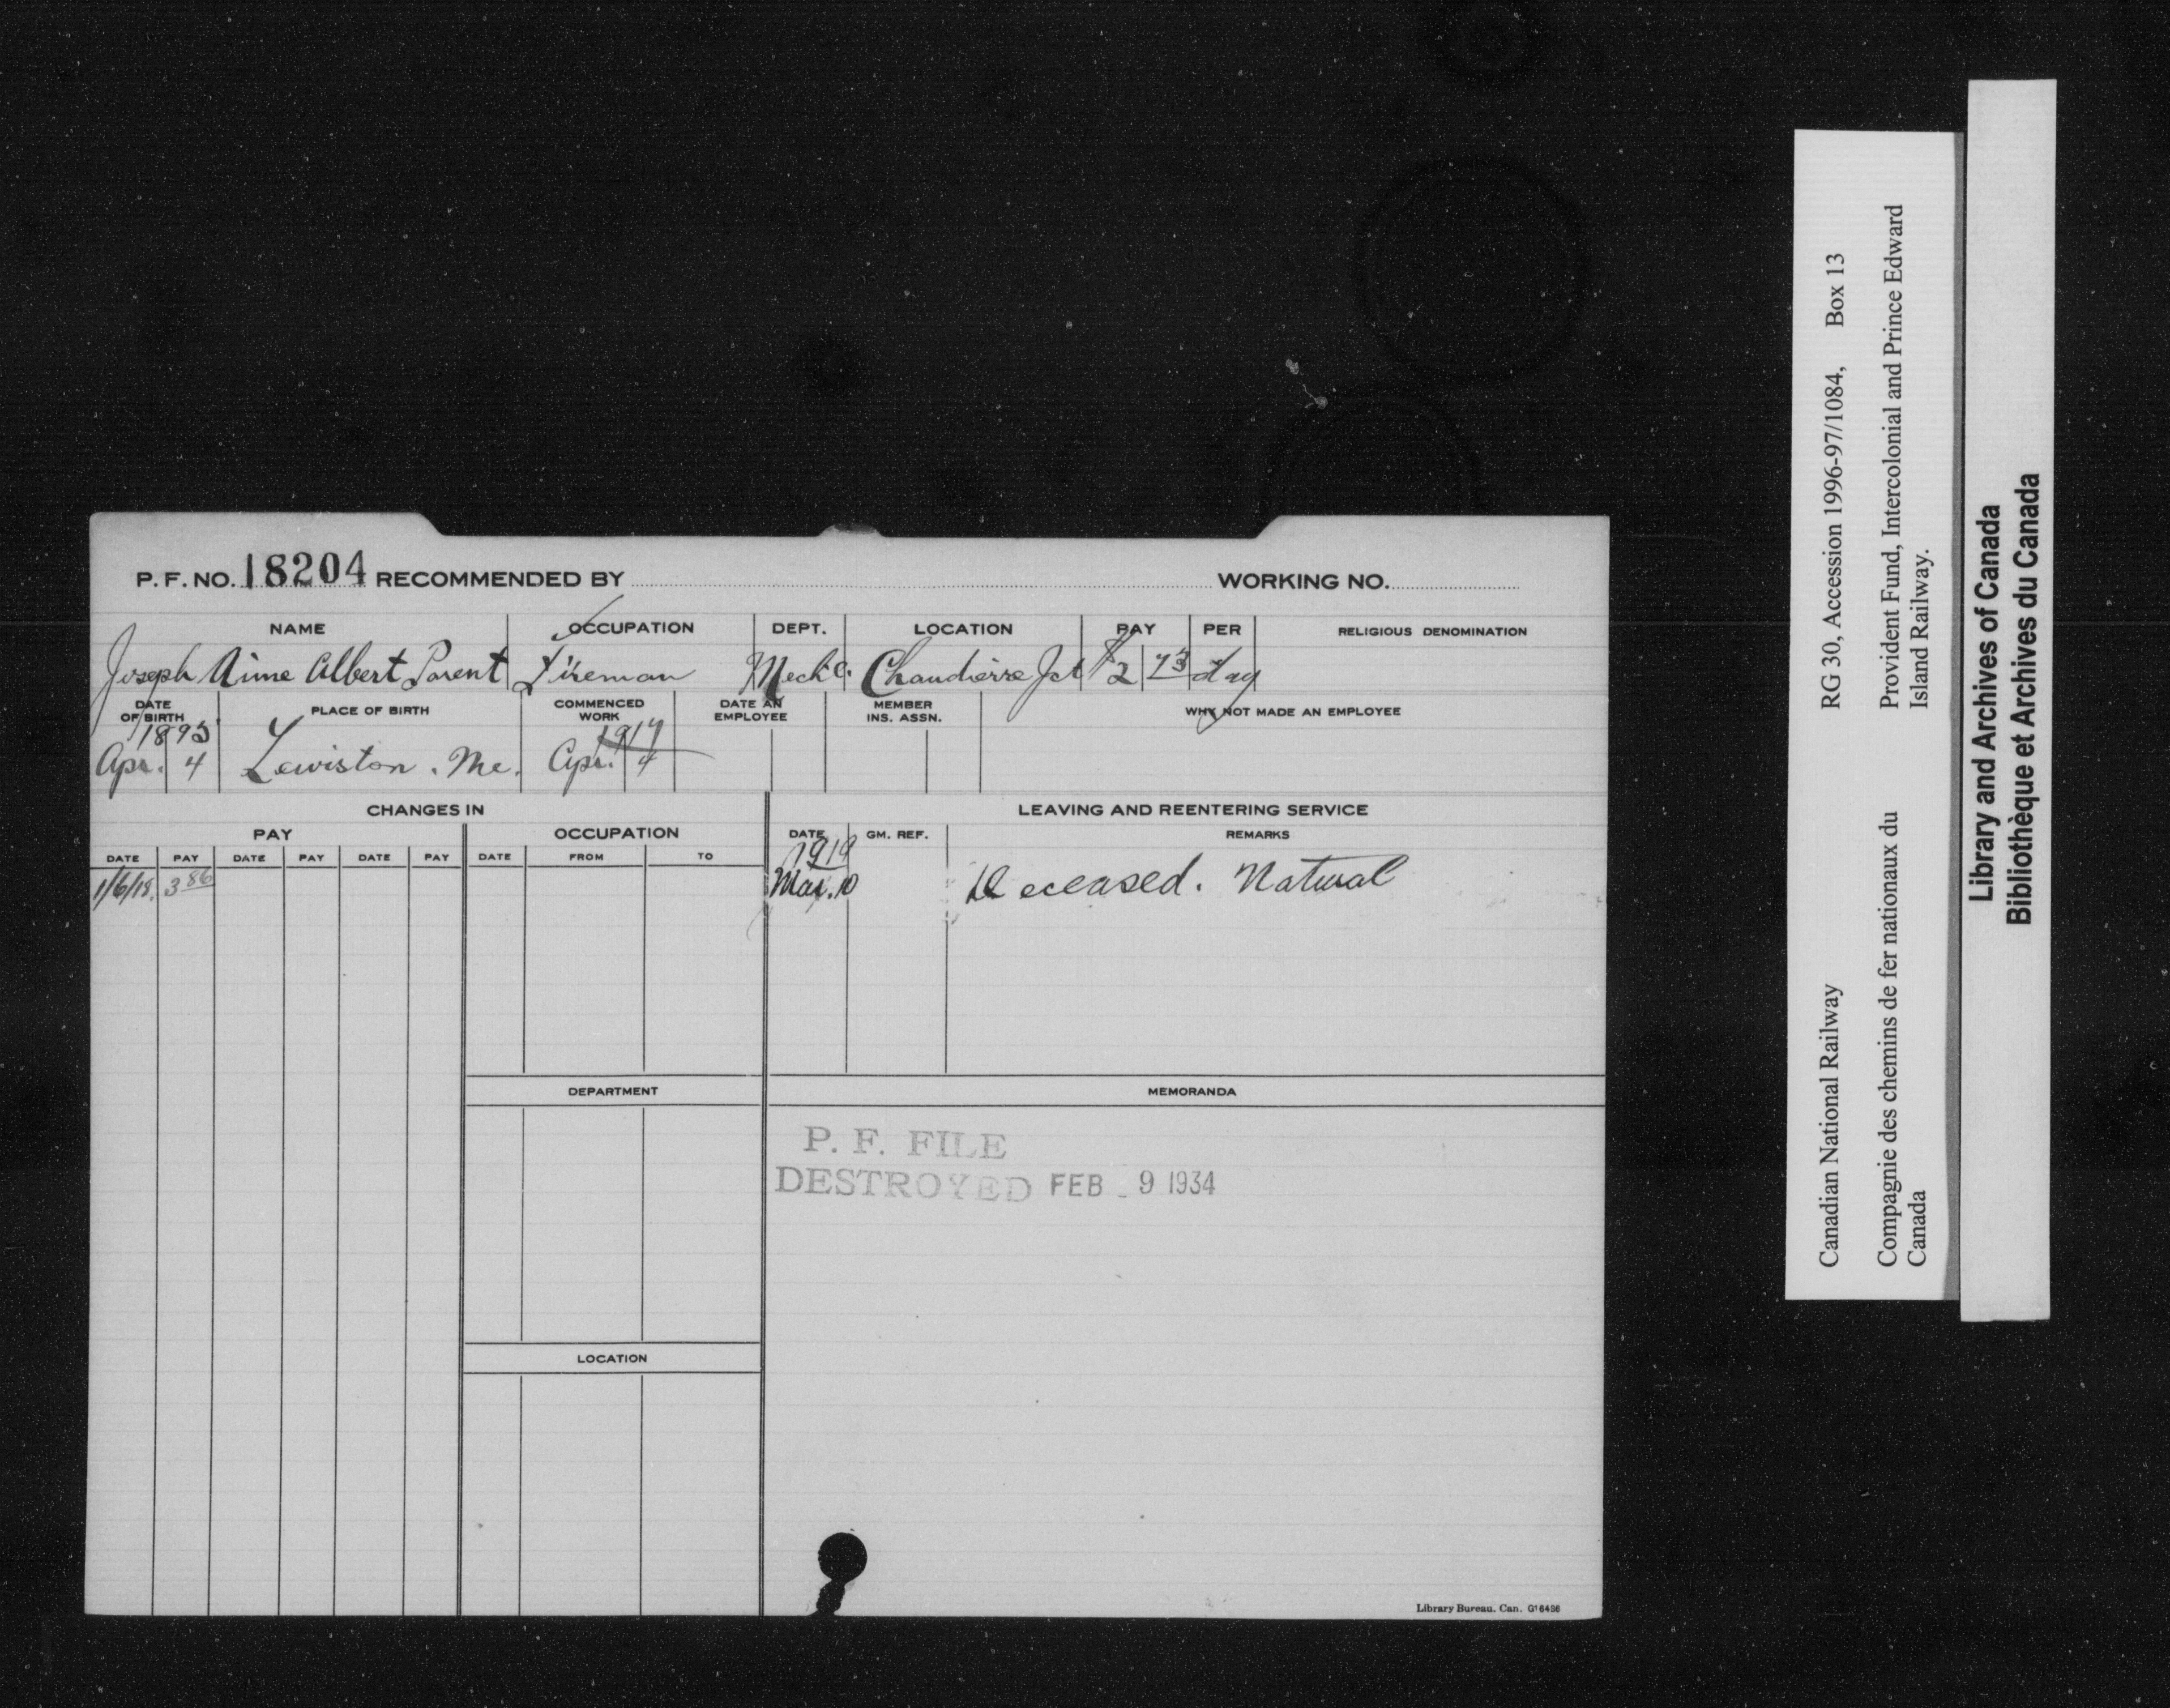 P. F. NO. 18204 RECOMMENDED BY WORKING NO.
NAME OCCUPATION DEPT. LOCATION PAY PER RELIGIOUS DENOMINATION
Joseph Aime Albert Parent Fireman Mech'l. Chaudierre Jct $2 73 day
DATE OF BIRTH PLACE OF BIRTH COMMENCED WORK DATE AN EMPLOYEE MEMBER INS. ASSN. WHY NOT MADE AN EMPLOYEE
1895 1917
Apr. 4 Lewiston. Me. Apr. 4
CHANGES IN LEAVING AND REENTERING SERVICE
PAY OCCUPATION DATE GM. REF. REMARKS
DATE PAY DATE PAY DATE PAY DATE FROM TO
1919
1/6/18. 3 86 Mar. 10 Deceased. Natural
DEPARTMENT MEMORANDA
P. F. FILE
DESTROYED FEB 9 1934
LOCATION
Library Bureau. Can. G16486
Canadian National Railway RG 30, Accession 1996-97/1084, Box 13
Compagnie des chemins de fer nationaux du Provident Fund, Intercolonial and Prince Edward
Canada Island Railway.
Library and Archives of Canada
Bibliothèque et Archives du Canada